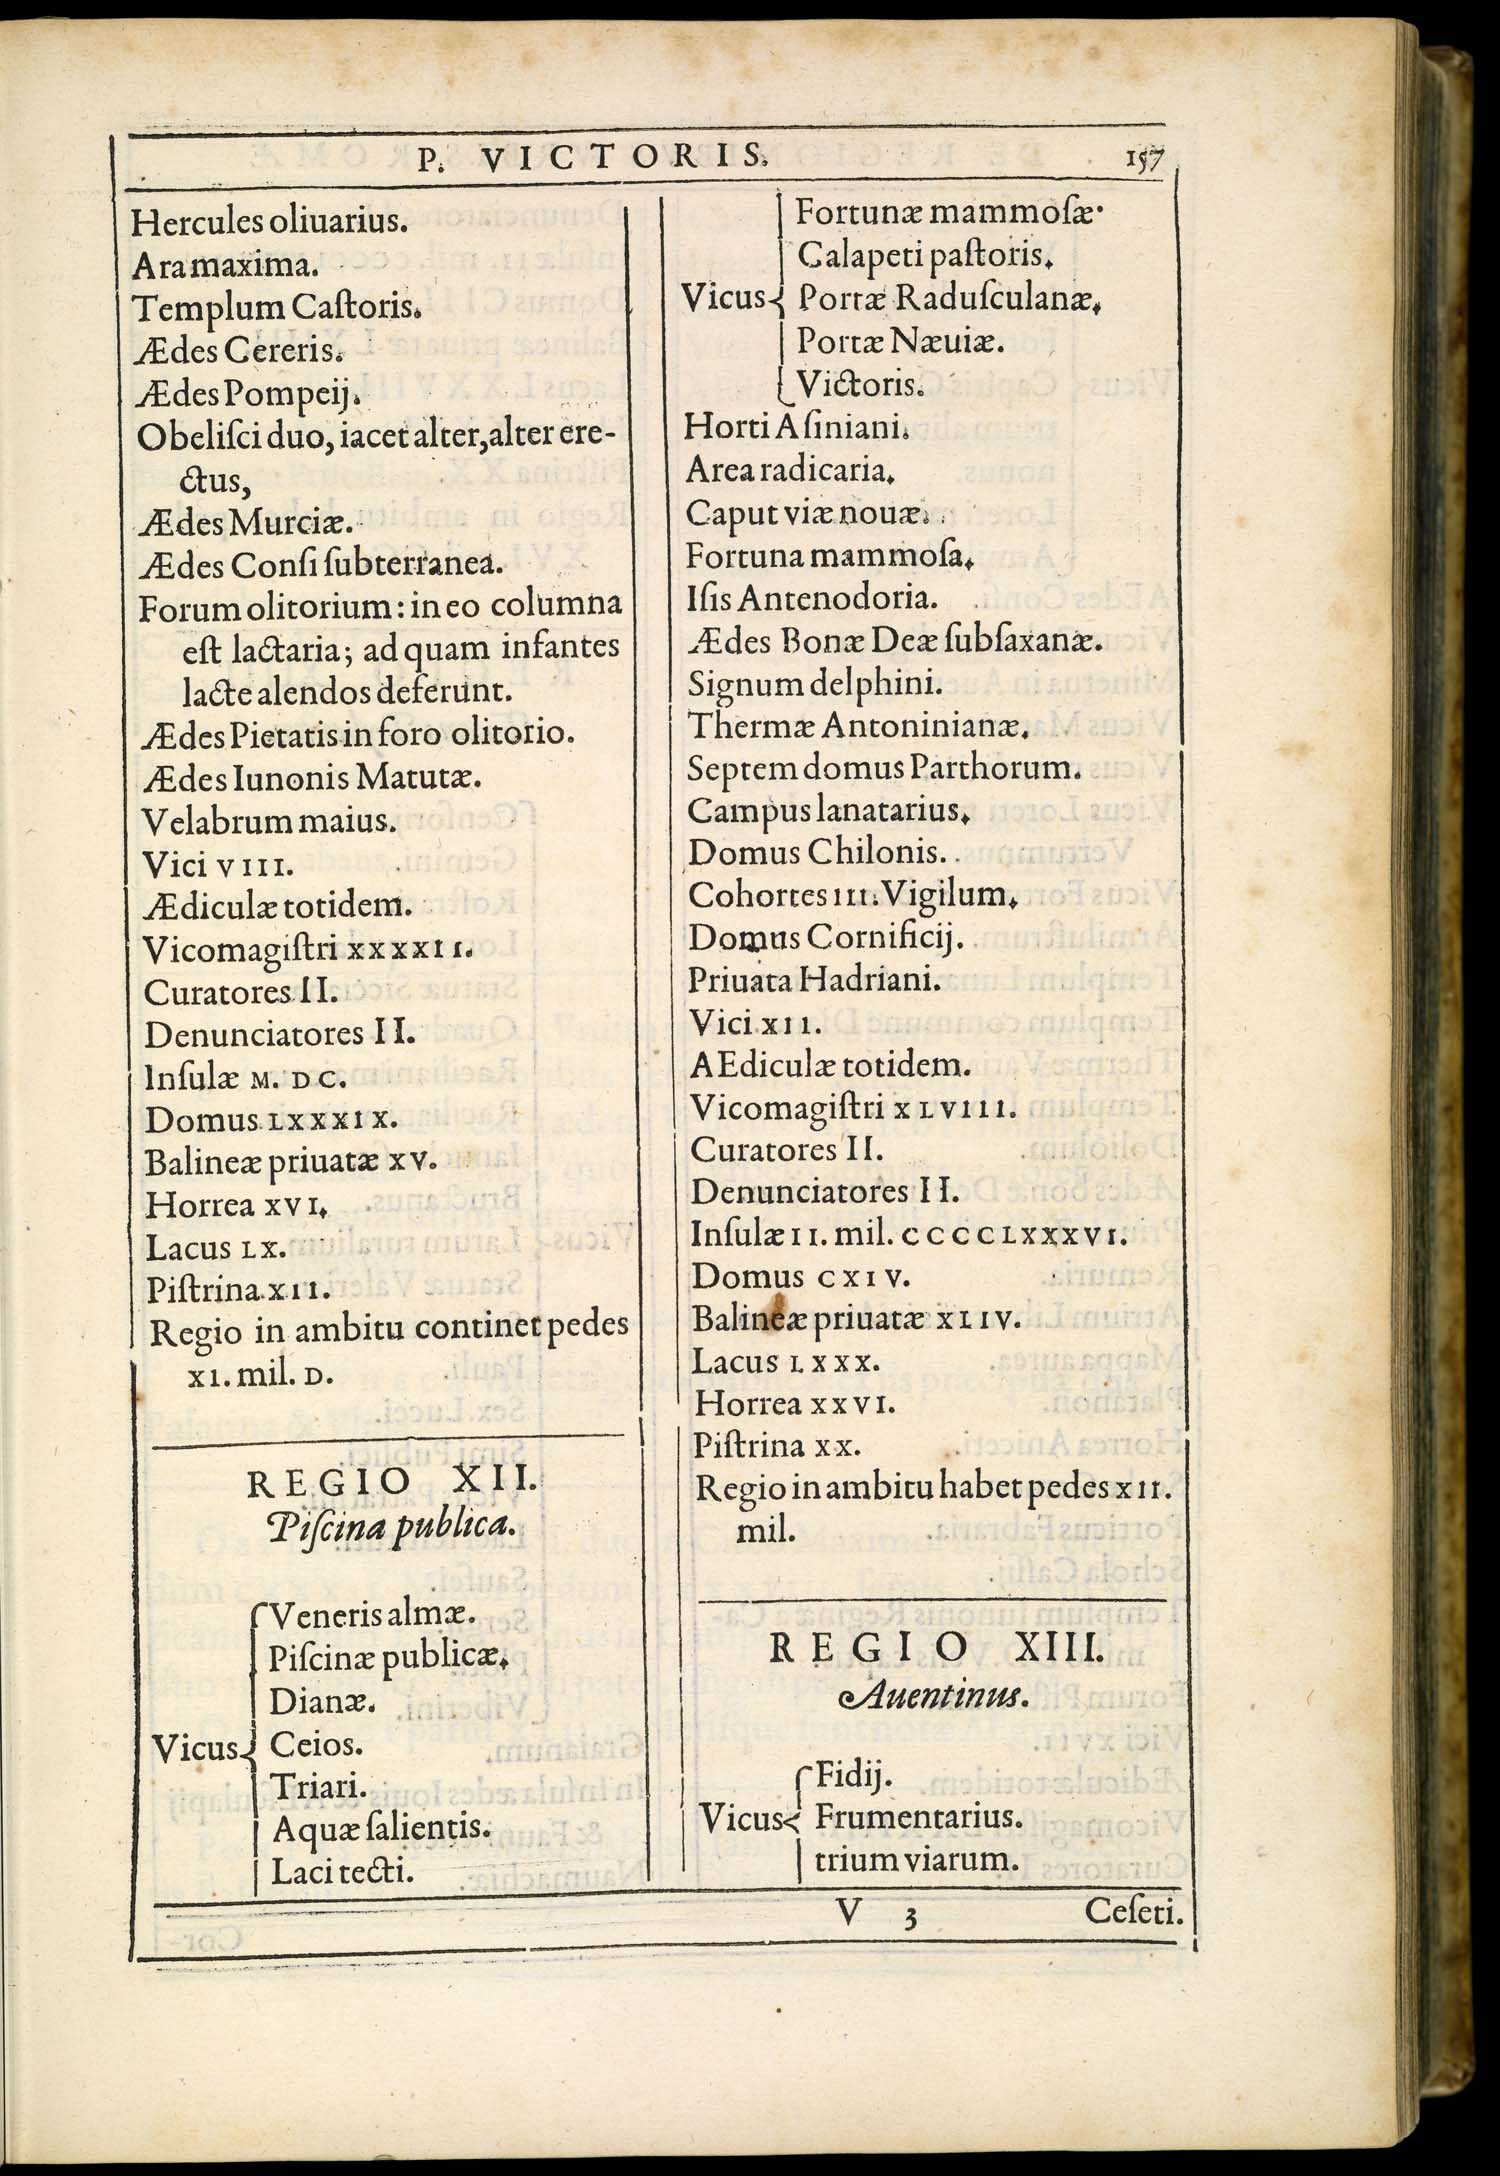 P. VICTORIS.
157
Hercules oliuarius.
Ara maxima.
Templum Caſtoris.
Ædes Cereris.
Ædes Pompeij.
Obeliſci duo, iacet alter, alter ere-
ctus,
Ædes Murciæ.
Ædes Conſi ſubterranea.
Forum olitorium: in eo columna
eſt lactaria; ad quam infantes
lacte alendos deferunt.
Ædes Pietatis in foro olitorio.
Ædes Iunonis Matutæ.
Velabrum maius.
Vici VIII.
Ædiculæ totidem.
Vicomagiſtri XXXXII.
Curatores II.
Denunciatores II.
Inſulæ M. DC.
Domus LXXXIX.
Balineæ priuatæ XV.
Horrea XVI.
Lacus LX.
Piſtrina XII.
Regio in ambitu continet pedes
XI. mil. D.
REGIO XII.
Piſcina publica.
Veneris almæ.
Piſcinæ publicæ.
Dianæ.
Vicus Ceios.
Triari.
Aquæ ſalientis.
Laci tecti.
Fortunæ mammoſæ.
Calapeti paſtoris.
Vicus Portæ Raduſculanæ.
Portæ Næuiæ.
Victoris.
Horti Aſiniani.
Area radicaria.
Caput viæ nouæ.
Fortuna mammoſa.
Iſis Antenodoria.
Ædes Bonæ Deæ ſubſaxanæ.
Signum delphini.
Thermæ Antoninianæ.
Septem domus Parthorum.
Campus lanatarius.
Domus Chilonis.
Cohortes III. Vigilum.
Domus Cornificij.
Priuata Hadriani.
Vici XII.
AEdiculæ totidem.
Vicomagiſtri XLVIII.
Curatores II.
Denunciatores II.
Inſulæ II. mil. CCCCLXXXVI.
Domus CXIV.
Balineæ priuatæ XLIV.
Lacus LXXX.
Horrea XXVI.
Piſtrina XX.
Regio in ambitu habet pedes XII.
mil.
REGIO XIII.
Auentinus.
Fidij.
Vicus Frumentarius.
trium viarum.
V 3
Ceſeti.